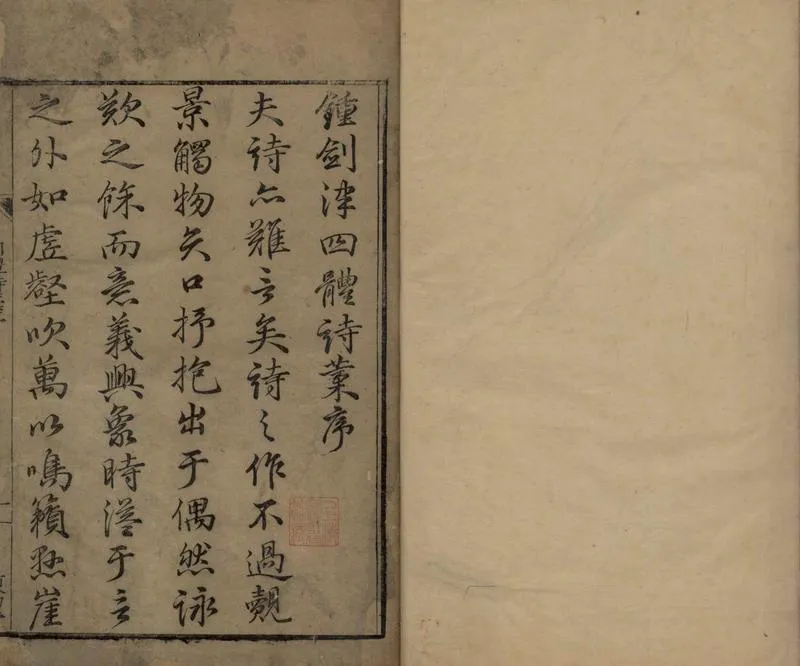 鍾劍津四體詩藁序
夫詩亦難言矣詩之作不過覩
景觸物矢口抒抱出于偶然詠
歎之餘而意義興象時溢于言
之外如虛壑吹萬以鳴籟點崖